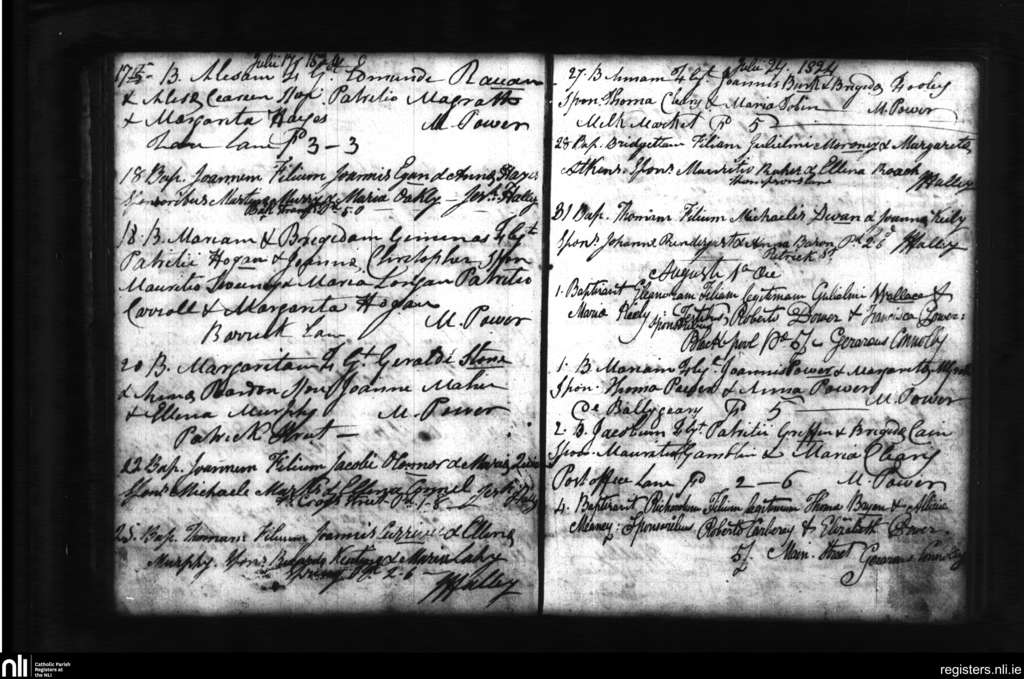 Julii 17 1824
17 B. Alesam F. G. Edmundi
& Alisa Hop. Patritio Magrath
& Margarita Hayes M. Power
Lane 3-3
18 Bap. Joannem Filium Joannis Egan & Anna Hayes
Sponsoribus Martino Murry & Maria Oakly
5-0
18. B. Mariam & Brigidam Geminas F. Lgt
Patritii Hogan & Joanna Christopher Spon
Mauritio Sweeny & Maria Lonigan Patritio
Carroll & Margarita Hogan
Barrack Lane M. Power
20 B. Margaritam F. Gt. Geraldi Stone
& Anna Reardon Spon Joanne Maher
& Ellena Murphy M. Power
Patrick Street
22 Bap. Joannem Filium Jacobi O Connor & Maria
Spons Michaele & Ellena
Cross Street 1-8
25. Bap. Thomam Filium Joannis & Ellena
Murphy. Spons. Richardo Keating & Maria Lahy
2-6
Halley
Julii 24. 1824
27. B Annam F Lgt Joannis Burk & Brigida Dooley
Spon. Thoma Cleary & Maria Tobin M. Power
Melk Market Pd 5
28 Bap. Bridgettam Filiam Gulielmi Moroney & Margarita
Atkins Spons. Mauritio & Ellena Roach
Thompsons lane Halley
31 Bap. Thomam Filium Michaelis Dwan & Joanna Kiely
Spons. Johanne Prendergast & Anna Baron Pd 2 6 Halley
Patrick St
Augusti 1a Die
1. Baptizavi Eleanoram Filiam legitimam Gulielmi Wallace &
Maria Kiely Sponsoribus Roberto Power & Francisca Power:
Black pool Pd 5/- Gerardus Connolly
1. B Mariam F Lgt. Joannis Power & Margarita
Spon. Thoma Power & Anna Power M. Power
Ce Ballygeary Pd 5
2. B. Jacobum F Lgt. Patritii Griffin & Brigida Cain
Spon. Mauritio Gamblin & Maria Cleary
Post office Lane Pd 2-6 M. Power
4. Baptizavi Richardum Filium legitimum Thoma Bryan & Allicia
Meaney: Sponsoribus Roberto Carbery & Elizabeth Power
5/ Main Street Gerardus Connolly
nli
Catholic Parish
Registers at
the NLI
registers.nli.ie